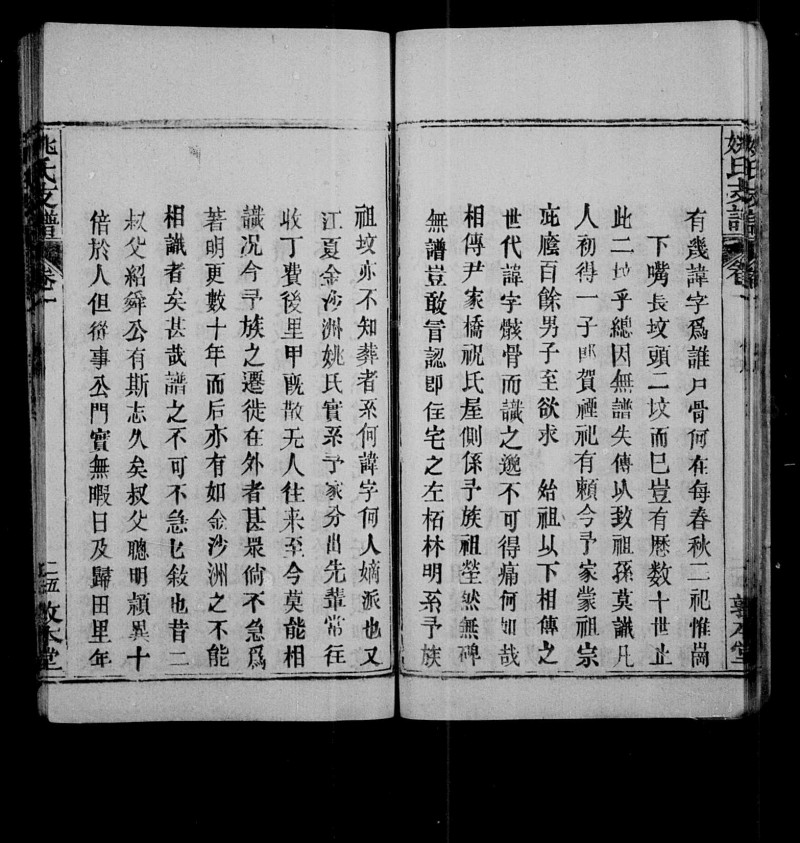 姚氏支譜
卷一
敦本堂
有幾諱字爲誰尸骨何在每春秋二祀惟崗
下嘴長坟頭二坟而巳豈有歷数十世止
此二坟乎總因無譜失傳以致祖孫莫識凡
人初得一子即賀禋祀有賴今予家蒙祖宗
庇廕百餘男子至欲求 始祖以下相傳之
世代諱字骸骨而識之邈不可得痛何如哉
相傳尹家橋祝氏屋側係予族祖塋然無碑
無譜豈敢冒認即住宅之左栢林明系予族
祖坟亦不知葬者系何諱字何人嫡派也又
江夏金沙洲姚氏實系予家分出先輩常往
收丁費後里甲旣散无人往来至今莫能相
識况今予族之遷徙在外者甚衆倘不急爲
著明更數十年而后亦有如金沙洲之不能
相識者矣甚哉譜之不可不急乜敍也昔二
叔父紹舜公有斯志久矣叔父聰明穎異十
倍於人但從事公門實無暇日及歸田里年
姚氏支譜
卷一
二五
敦本堂